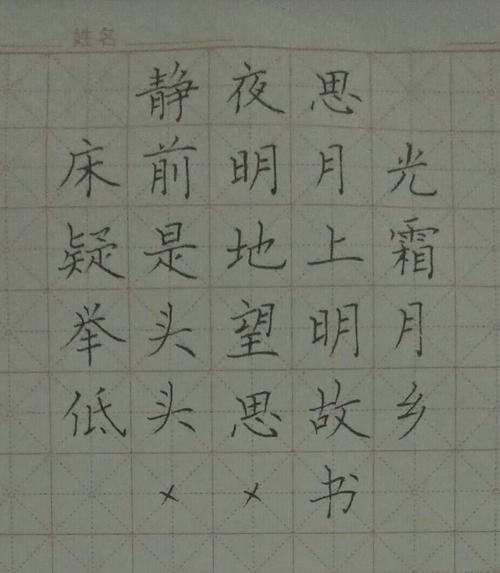 姓名
静夜思
床前明月光
疑是地上霜
举头望明月
低头思故乡
××书